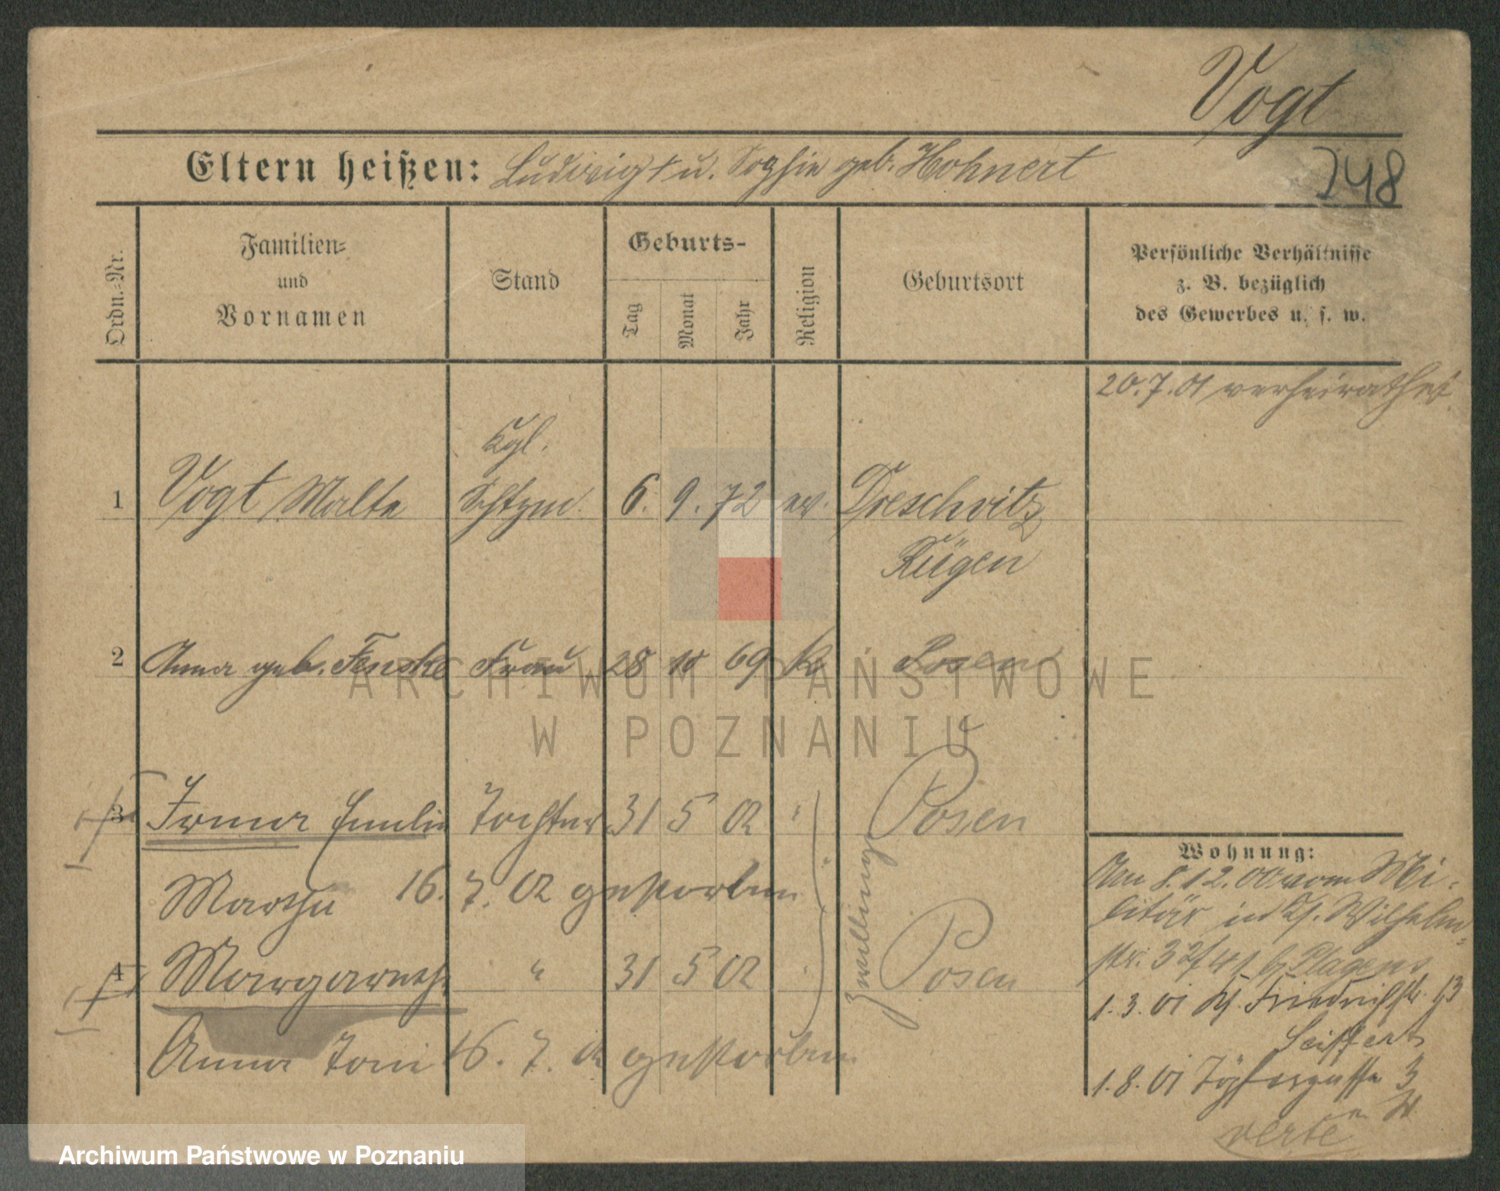 Vogt
748
Eltern heißen: Ludwig † u. Sophie geb. Hohnert
Ordn.-Nr.
Familien-
und
Vornamen
Stand
Geburts-
Tag
Monat
Jahr
Religion
Geburtsort
Persönliche Verhältnisse
z. B. bezüglich
des Gewerbes u. s. w.
20.7.01 verheirathet
Kgl.
1 Vogt Malte Schtzm. 6. 9. 72 ev. Dreschvitz
Rügen
2 Anna geb. Fenske Frau 28 10 69 k. Posen
3 Irma Emilie Tochter 31 5 02 " Posen
Martha 16. 7. 02 gestorben
Zwillinge
4 Margarethe " 31 5 02 " Posen
Anna Toni 16. 7. 02 gestorben
Wohnung:
Am 8.12.00 vom Mi-
litär in Kg. Wilhelm-
str. 32/41 b. Plagens
1.3.01 Friedrichstr. 13
Seiffert
1.8.01 Töpfergasse 3
verte
ARCHIWUM PAŃSTWOWE
W POZNANIU
Archiwum Państwowe w Poznaniu